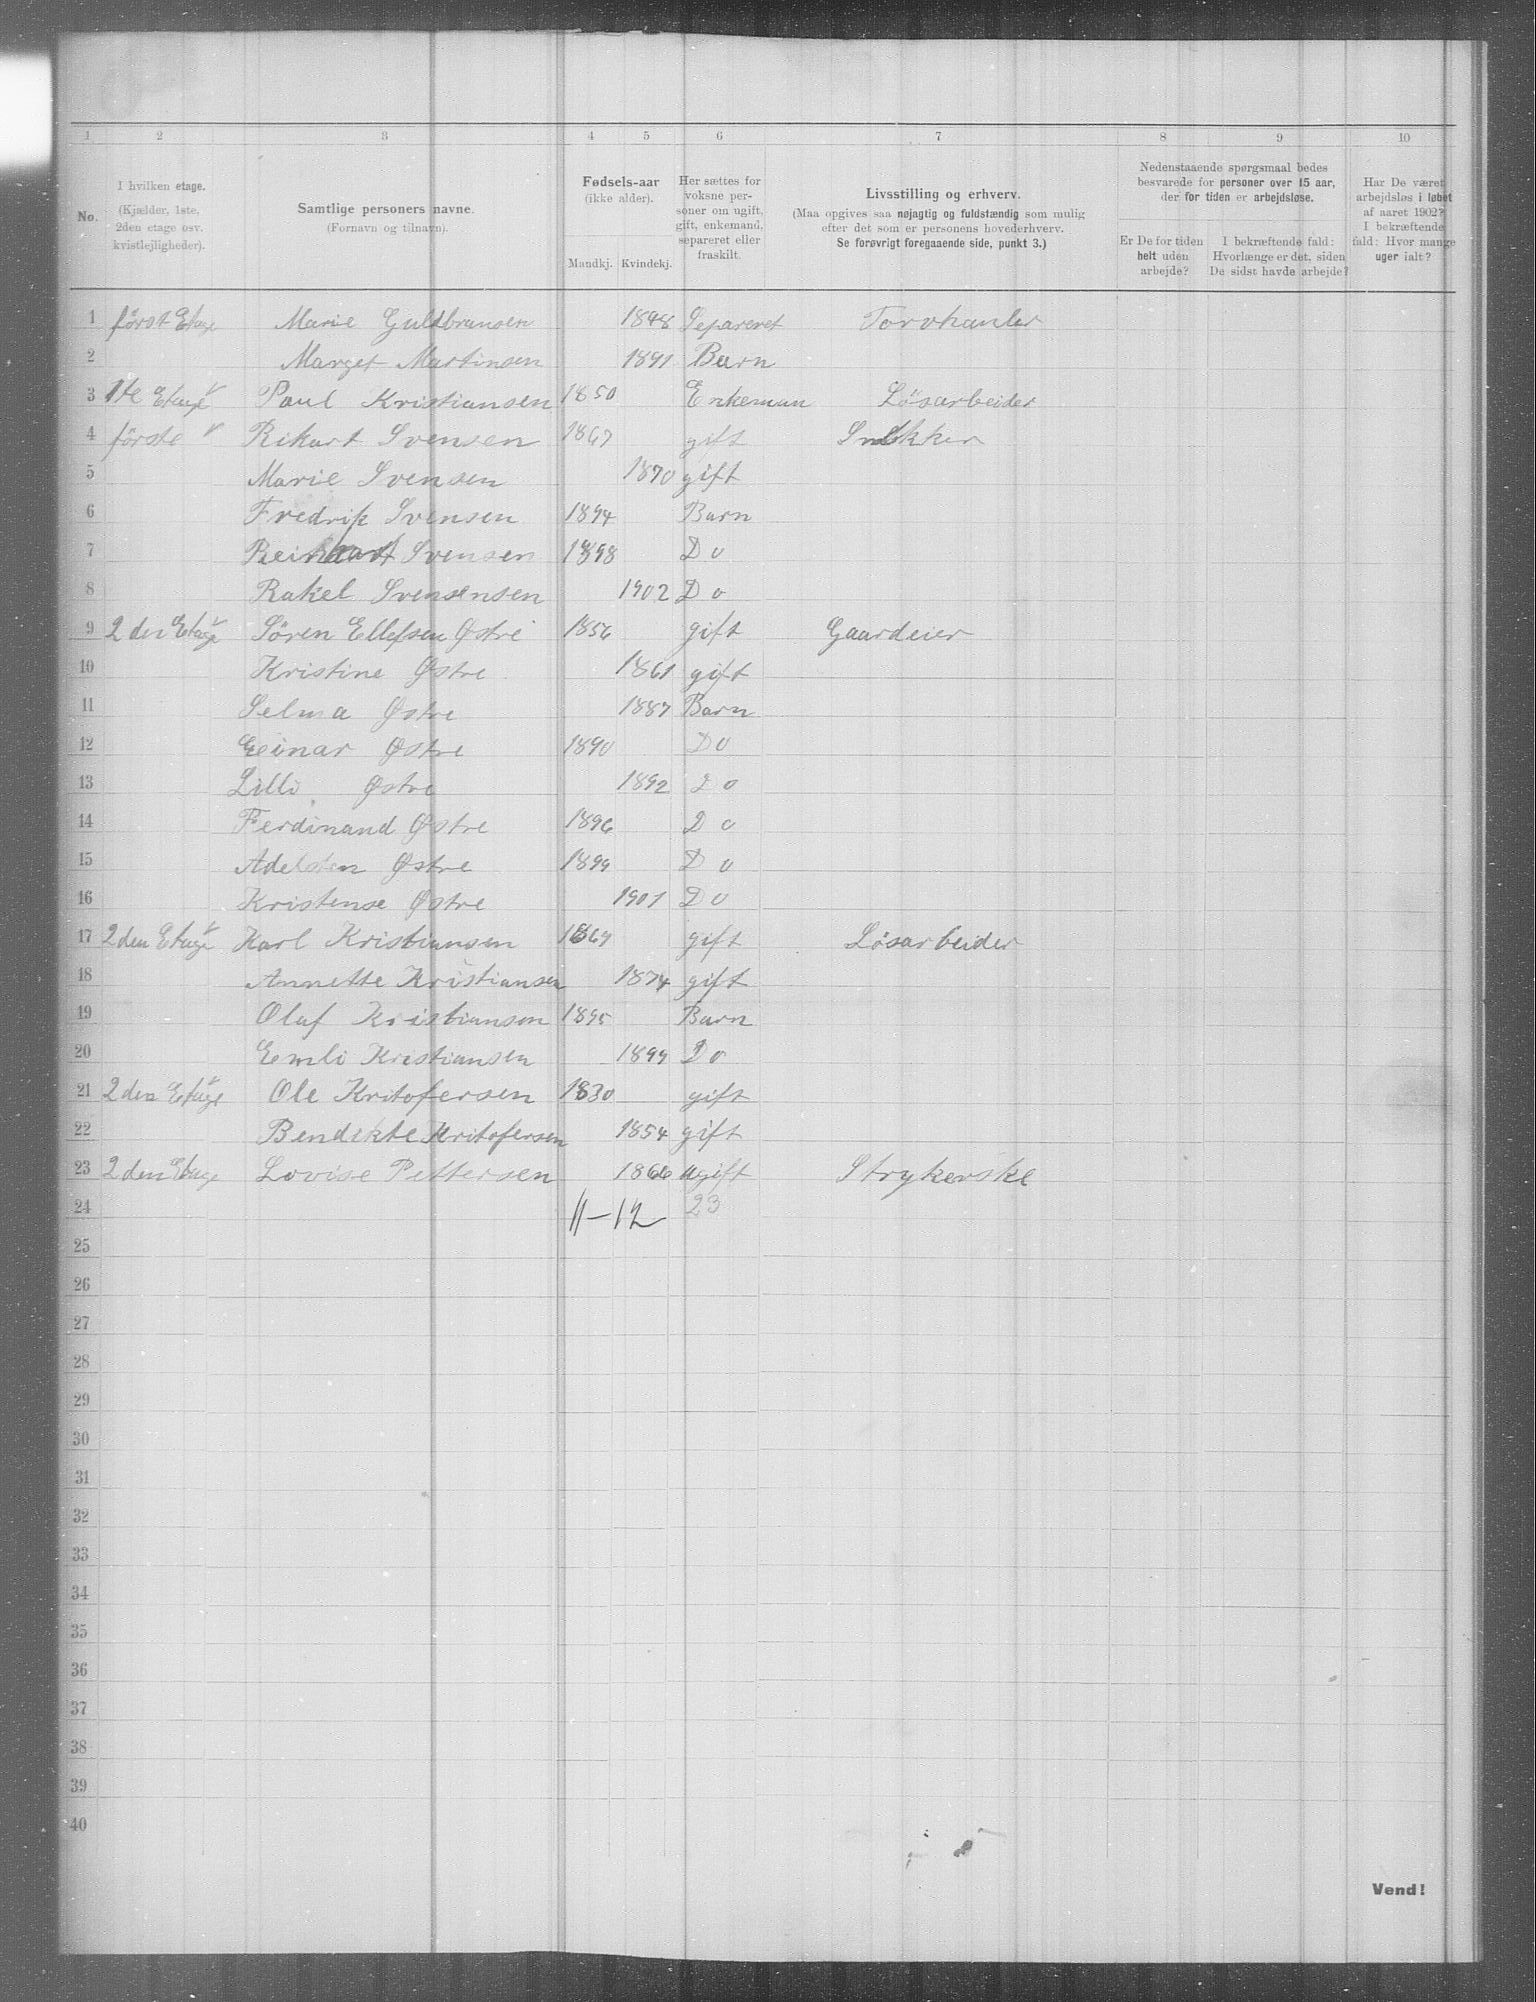 1 2 3 4 5 6 7 8 9 10
No. I hvilken etage. (Kjælder, 1ste, 2den etage osv. kvistlejligheder).
Samtlige personers navne. (Fornavn og tilnavn).
Fødsels-aar (ikke alder). Mandkj. Kvindekj.
Her sættes for voksne personer om ugift, gift, enkemand, separeret eller fraskilt.
Livsstilling og erhverv. (Maa opgives saa nøjagtig og fuldstændig som mulig efter det som er personens hovederhverv. Se forøvrigt foregaaende side, punkt 3.)
Nedenstaaende spørgsmaal bedes besvarede for personer over 15 aar, der for tiden er arbejdsløse.
Er De for tiden helt uden arbejde?
I bekræftende fald: Hvorlænge er det, siden De sidst havde arbejde?
Har De været arbejdsløs i løbet af aaret 1902? I bekræftende fald: Hvor mange uger ialt?
1 først Etage Marie Guldbransen 1848 Separeret Torvhanler
2 Marget Martinsen 1891 Barn
3 1te Etage Paul Kristiansen 1850 Enkeman Løsarbeider
4 første Rikart Svensen 1867 gift Snekker
5 Marie Svensen 1870 gift
6 Fredrik Svensen 1894 Barn
7 Reinhart Svensen 1898 Do
8 Rakel Svensensen 1902 Do
9 2den Etage Søren Ellefsen Østre 1856 gift Gaardeier
10 Kristine Østre 1861 gift
11 Selma Østre 1887 Barn
12 Eeinar Østre 1890 Do
13 Lilli Østre 1892 Do
14 Ferdinand Østre 1896 Do
15 Adelsten Østre 1899 Do
16 Kristense Østre 1901 Do
17 2den Etage Karl Kristiansen 1869 gift Løsarbeider
18 Annette Kristiansen 1874 gift
19 Olaf Kristiansen 1895 Barn
20 Eemli Kristiansen 1899 Do
21 2den Etage Ole Kritofersen 1830 gift
22 Bendikte Kritofersen 1854 gift
23 2den Etage Lovise Pettersen 1866 ugift Strykerske
24 11-12 23
25
26
27
28
29
30
31
32
33
34
35
36
37
38
39
40
Vend!